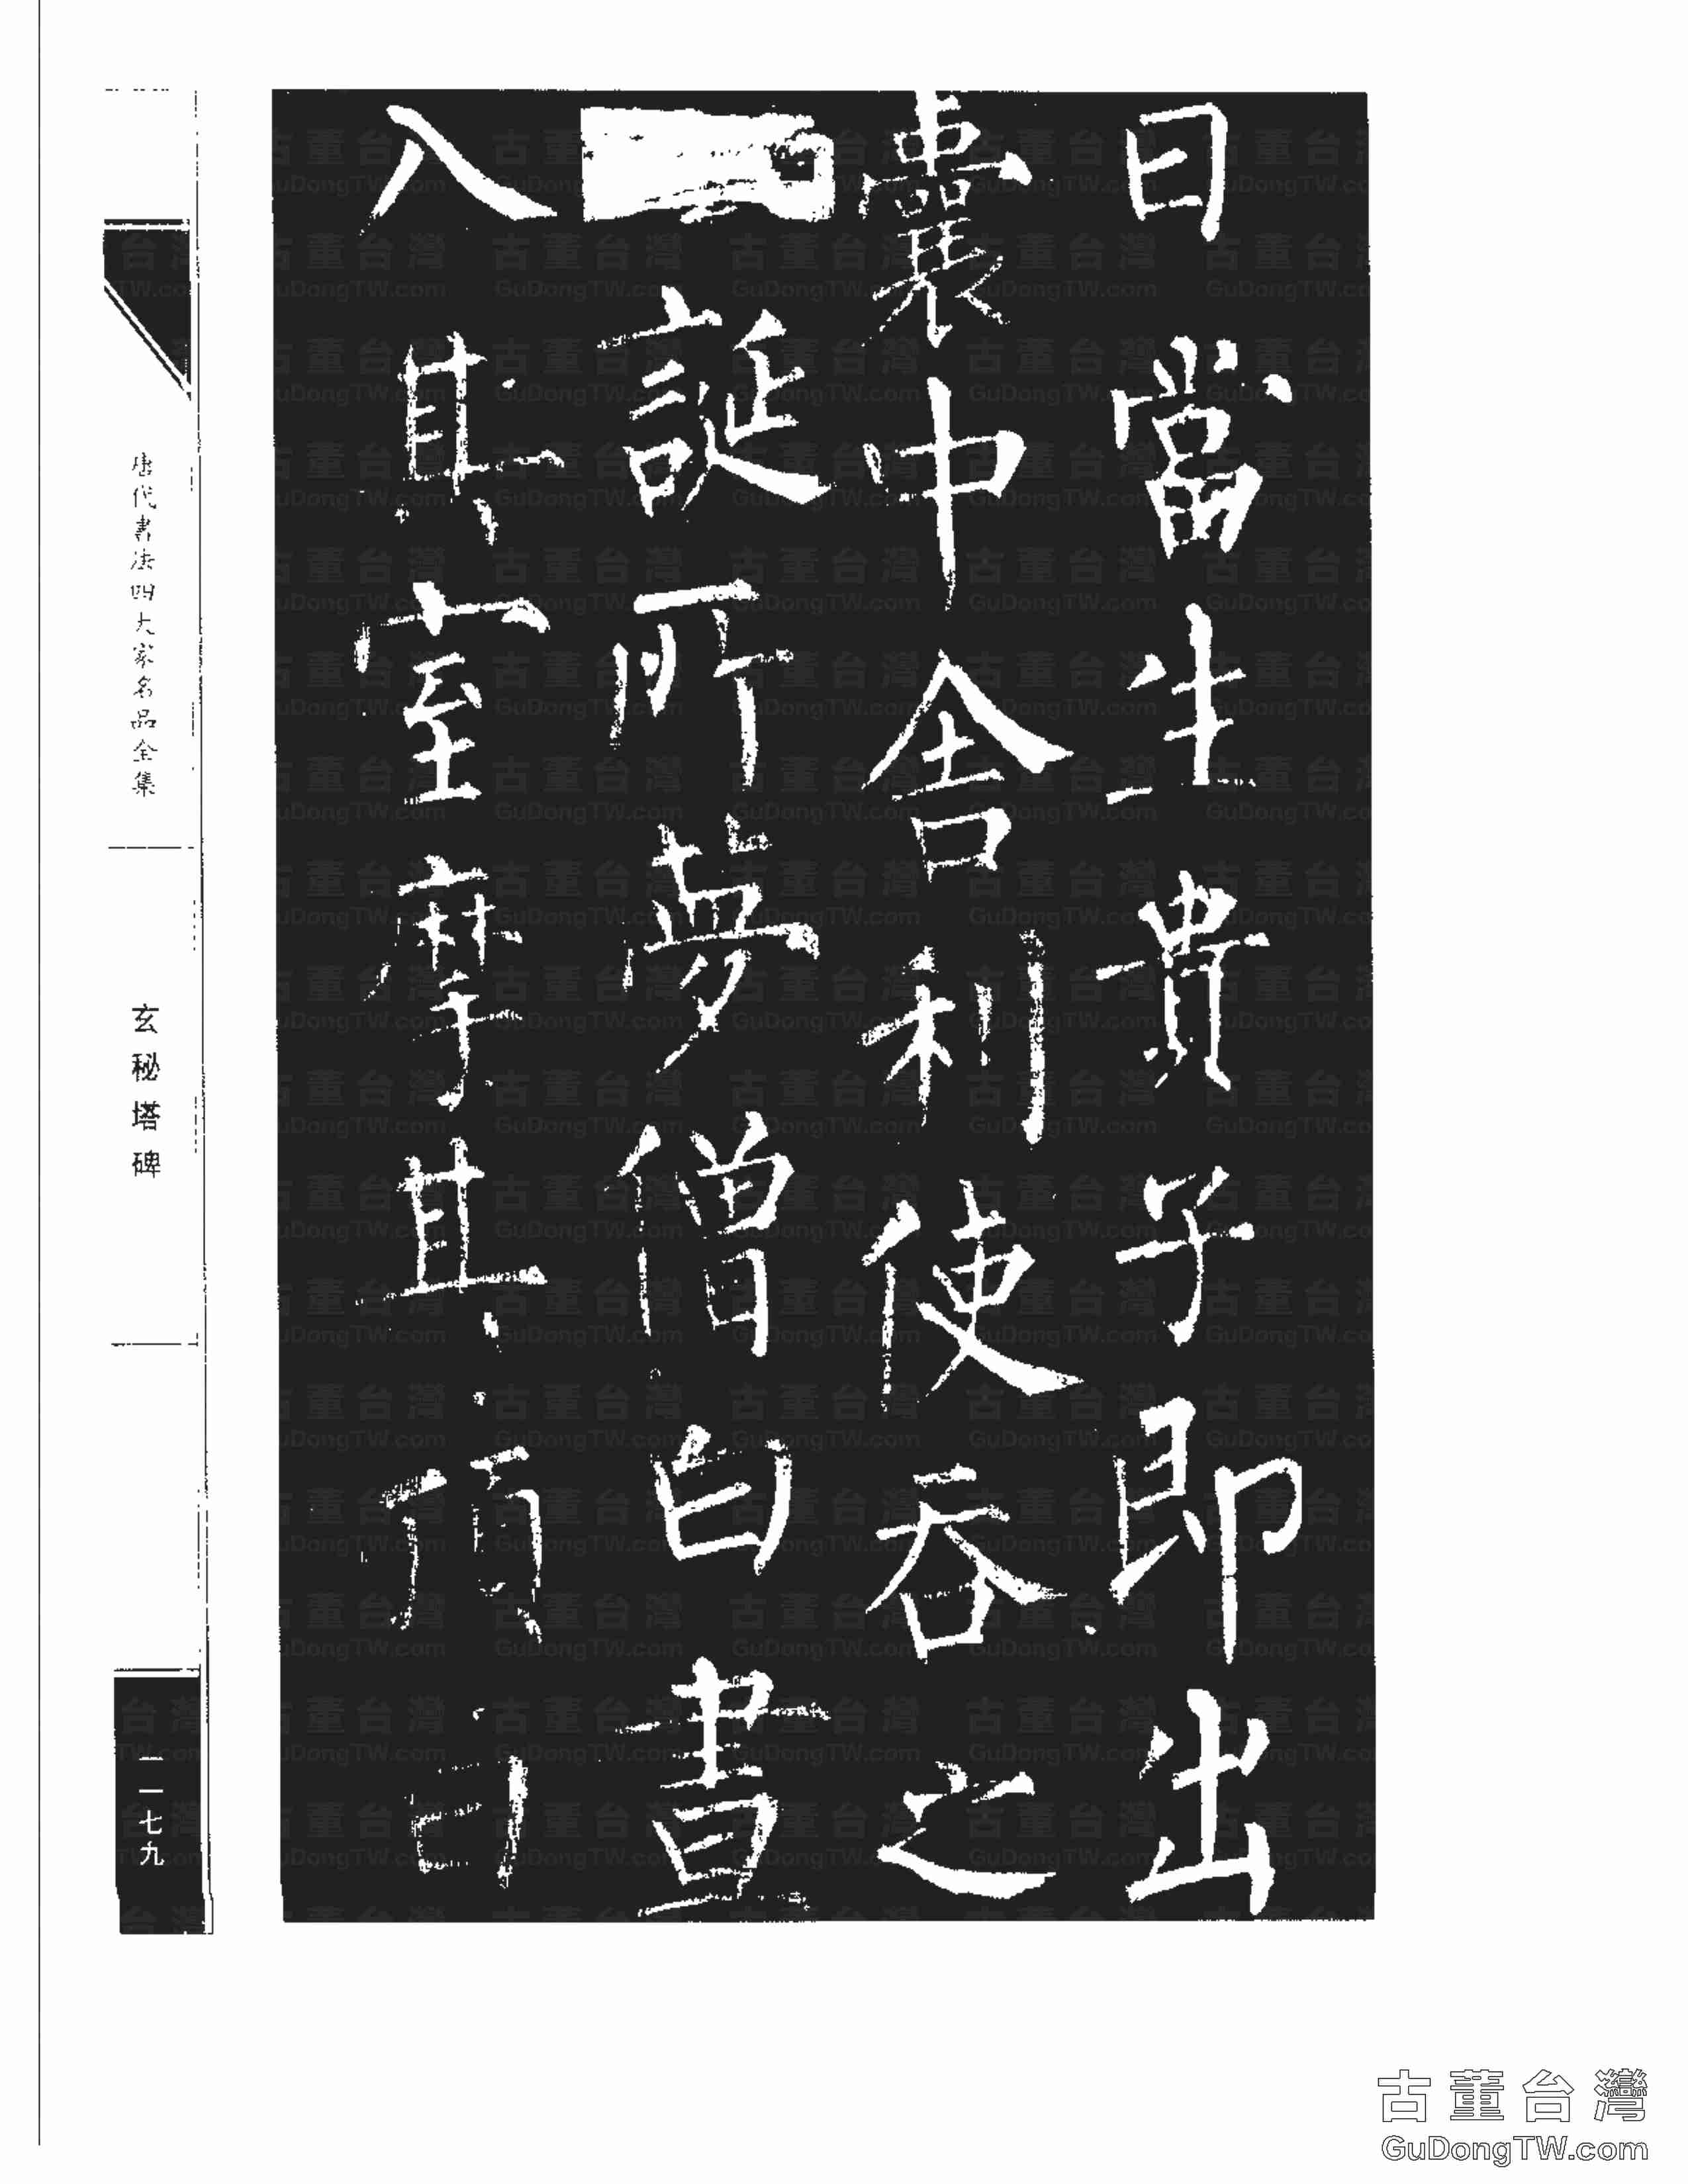 曰當生貴子即出
囊中舍利使吞之
誕所夢僧白晝
入其室摩其頂曰
唐代書法四大家名品全集
玄秘塔碑
一一七九
古董台灣
GuDongTW.com